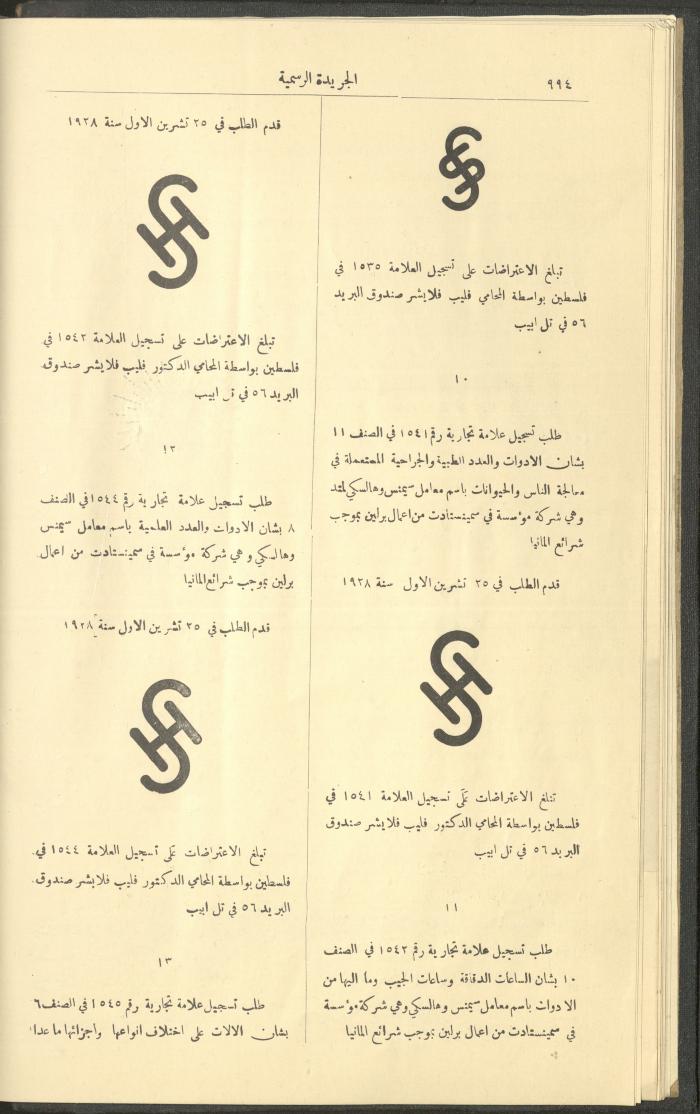 ٩٩٤
الجريدة الرسمية
تبلغ الاعتراضات على تسجيل العلامة ١٥٣٥ في
فلسطين بواسطة المحامي فليب فلايشر صندوق البريد
٥٦ في تل ابيب
١٠
طلب تسجيل علامة تجارية رقم ١٥٤١ في الصنف ١١
بشان الادوات والعدد الطبية والجراحية المستعملة في
معالجة الناس والحيوانات باسم معامل سيمنس وهالسكي لمتد
وهي شركة مؤسسة في سمينستادت من اعمال برلين بموجب
شرائع المانيا
قدم الطلب في ٢٥ تشرين الاول سنة ١٩٢٨
تبلغ الاعتراضات على تسجيل العلامة ١٥٤١ في
فلسطين بواسطة المحامي الدكتور فليب فلايشر صندوق
البريد ٥٦ في تل ابيب
١١
طلب تسجيل علامة تجارية رقم ١٥٤٢ في الصنف
١٠ بشان الساعات الدقاقة وساعات الجيب وما اليها من
الادوات باسم معامل سيمنس وهالسكي وهي شركة مؤسسة
في سمينستادت من اعمال برلين بموجب شرائع المانيا
قدم الطلب في ٢٥ تشرين الاول سنة ١٩٢٨
تبلغ الاعتراضات على تسجيل العلامة ١٥٤٢ في
فلسطين بواسطة المحامي الدكتور فليب فلايشر صندوق
البريد ٥٦ في تل ابيب
١٢
طلب تسجيل علامة تجارية رقم ١٥٤٤ في الصنف
٨ بشان الادوات والعدد العلمية باسم معامل سيمنس
وهالسكي وهي شركة مؤسسة في سمينستادت من اعمال
برلين بموجب شرائع المانيا
قدم الطلب في ٢٥ تشرين الاول سنة ١٩٢٨
تبلغ الاعتراضات على تسجيل العلامة ١٥٤٤ في
فلسطين بواسطة المحامي الدكتور فليب فلايشر صندوق
البريد ٥٦ في تل ابيب
١٣
طلب تسجيل علامة تجارية رقم ١٥٤٥ في الصنف ٦
بشان الالات على اختلاف انواعها واجزائها ما عدا